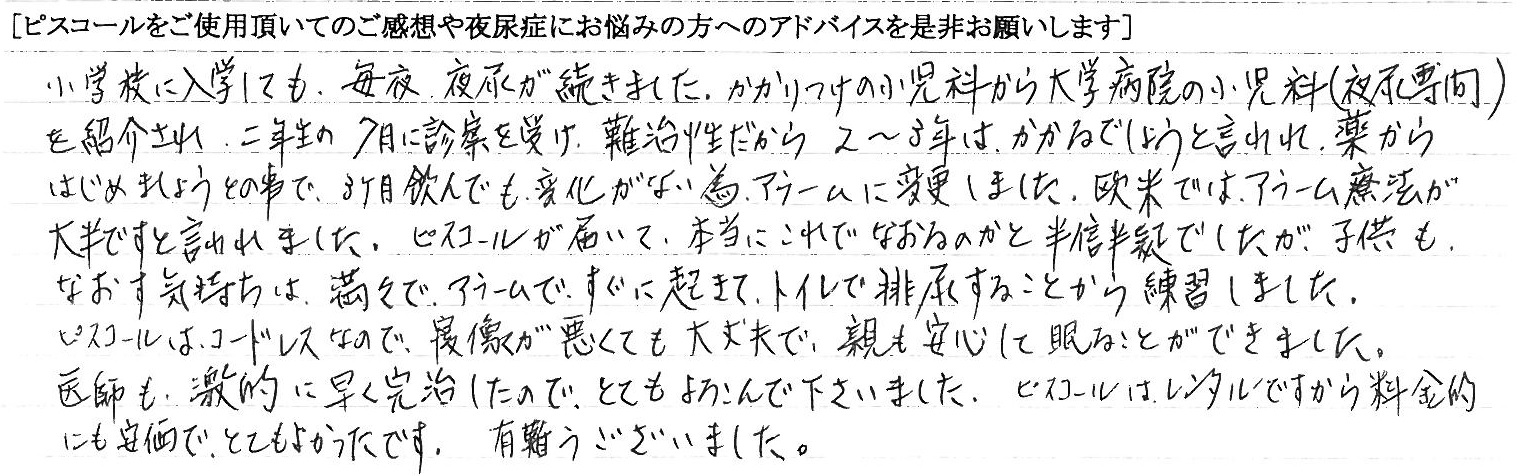 [ピスコールをご使用頂いてのご感想や夜尿症にお悩みの方へのアドバイスを是非お願いします]
小学校に入学しても、毎夜、夜尿が続きました。かかりつけの小児科から大学病院の小児科(夜尿専門)
を紹介され、二年生の7月に診察を受け、難治性だから2〜3年は、かかるでしょうと言われ、薬から
はじめましょうとの事で、3ケ月飲んでも、変化がない為、アラームに変更しました。欧米では、アラーム療法が
大半ですと言われました。ピスコールが届いて、本当にこれでなおるのかと半信半疑でしたが、子供も、
なおす気持ちは、満々で、アラームで、すぐに起きて、トイレで排尿することから練習しました。
ピスコールは、コードレスなので、寝像が悪くても大丈夫で、親も安心して眠ることができました。
医師も、激的に早く完治したので、とてもよろこんで下さいました。ピスコールは、レンタルですから料金的
にも安価で、とてもよかったです。有難うございました。